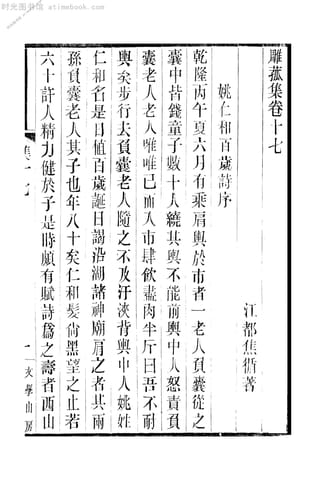 时光图书馆 atimebook.com
雕菰集卷十七
江都焦循著
姚仁和百歲詩序
乾隆丙午夏六月有乘肩輿於市者一老人負囊從之
囊中皆錢童子數十人繞其輿不能前輿中人怒責負
囊老人老人唯唯已而入市肆飲盡肉半斤曰吾不耐
輿矣步行去負囊老人隨之不及汗浹背輿中人姚姓
仁和名是日值百歲誕日謁沿湖諸神廟肩之者其兩
孫負囊老人其子也年八十矣仁和髮尚黑望之止若
六十許人精力健於子是時頗有賦詩爲之壽者西山
集十七
一
文學山房